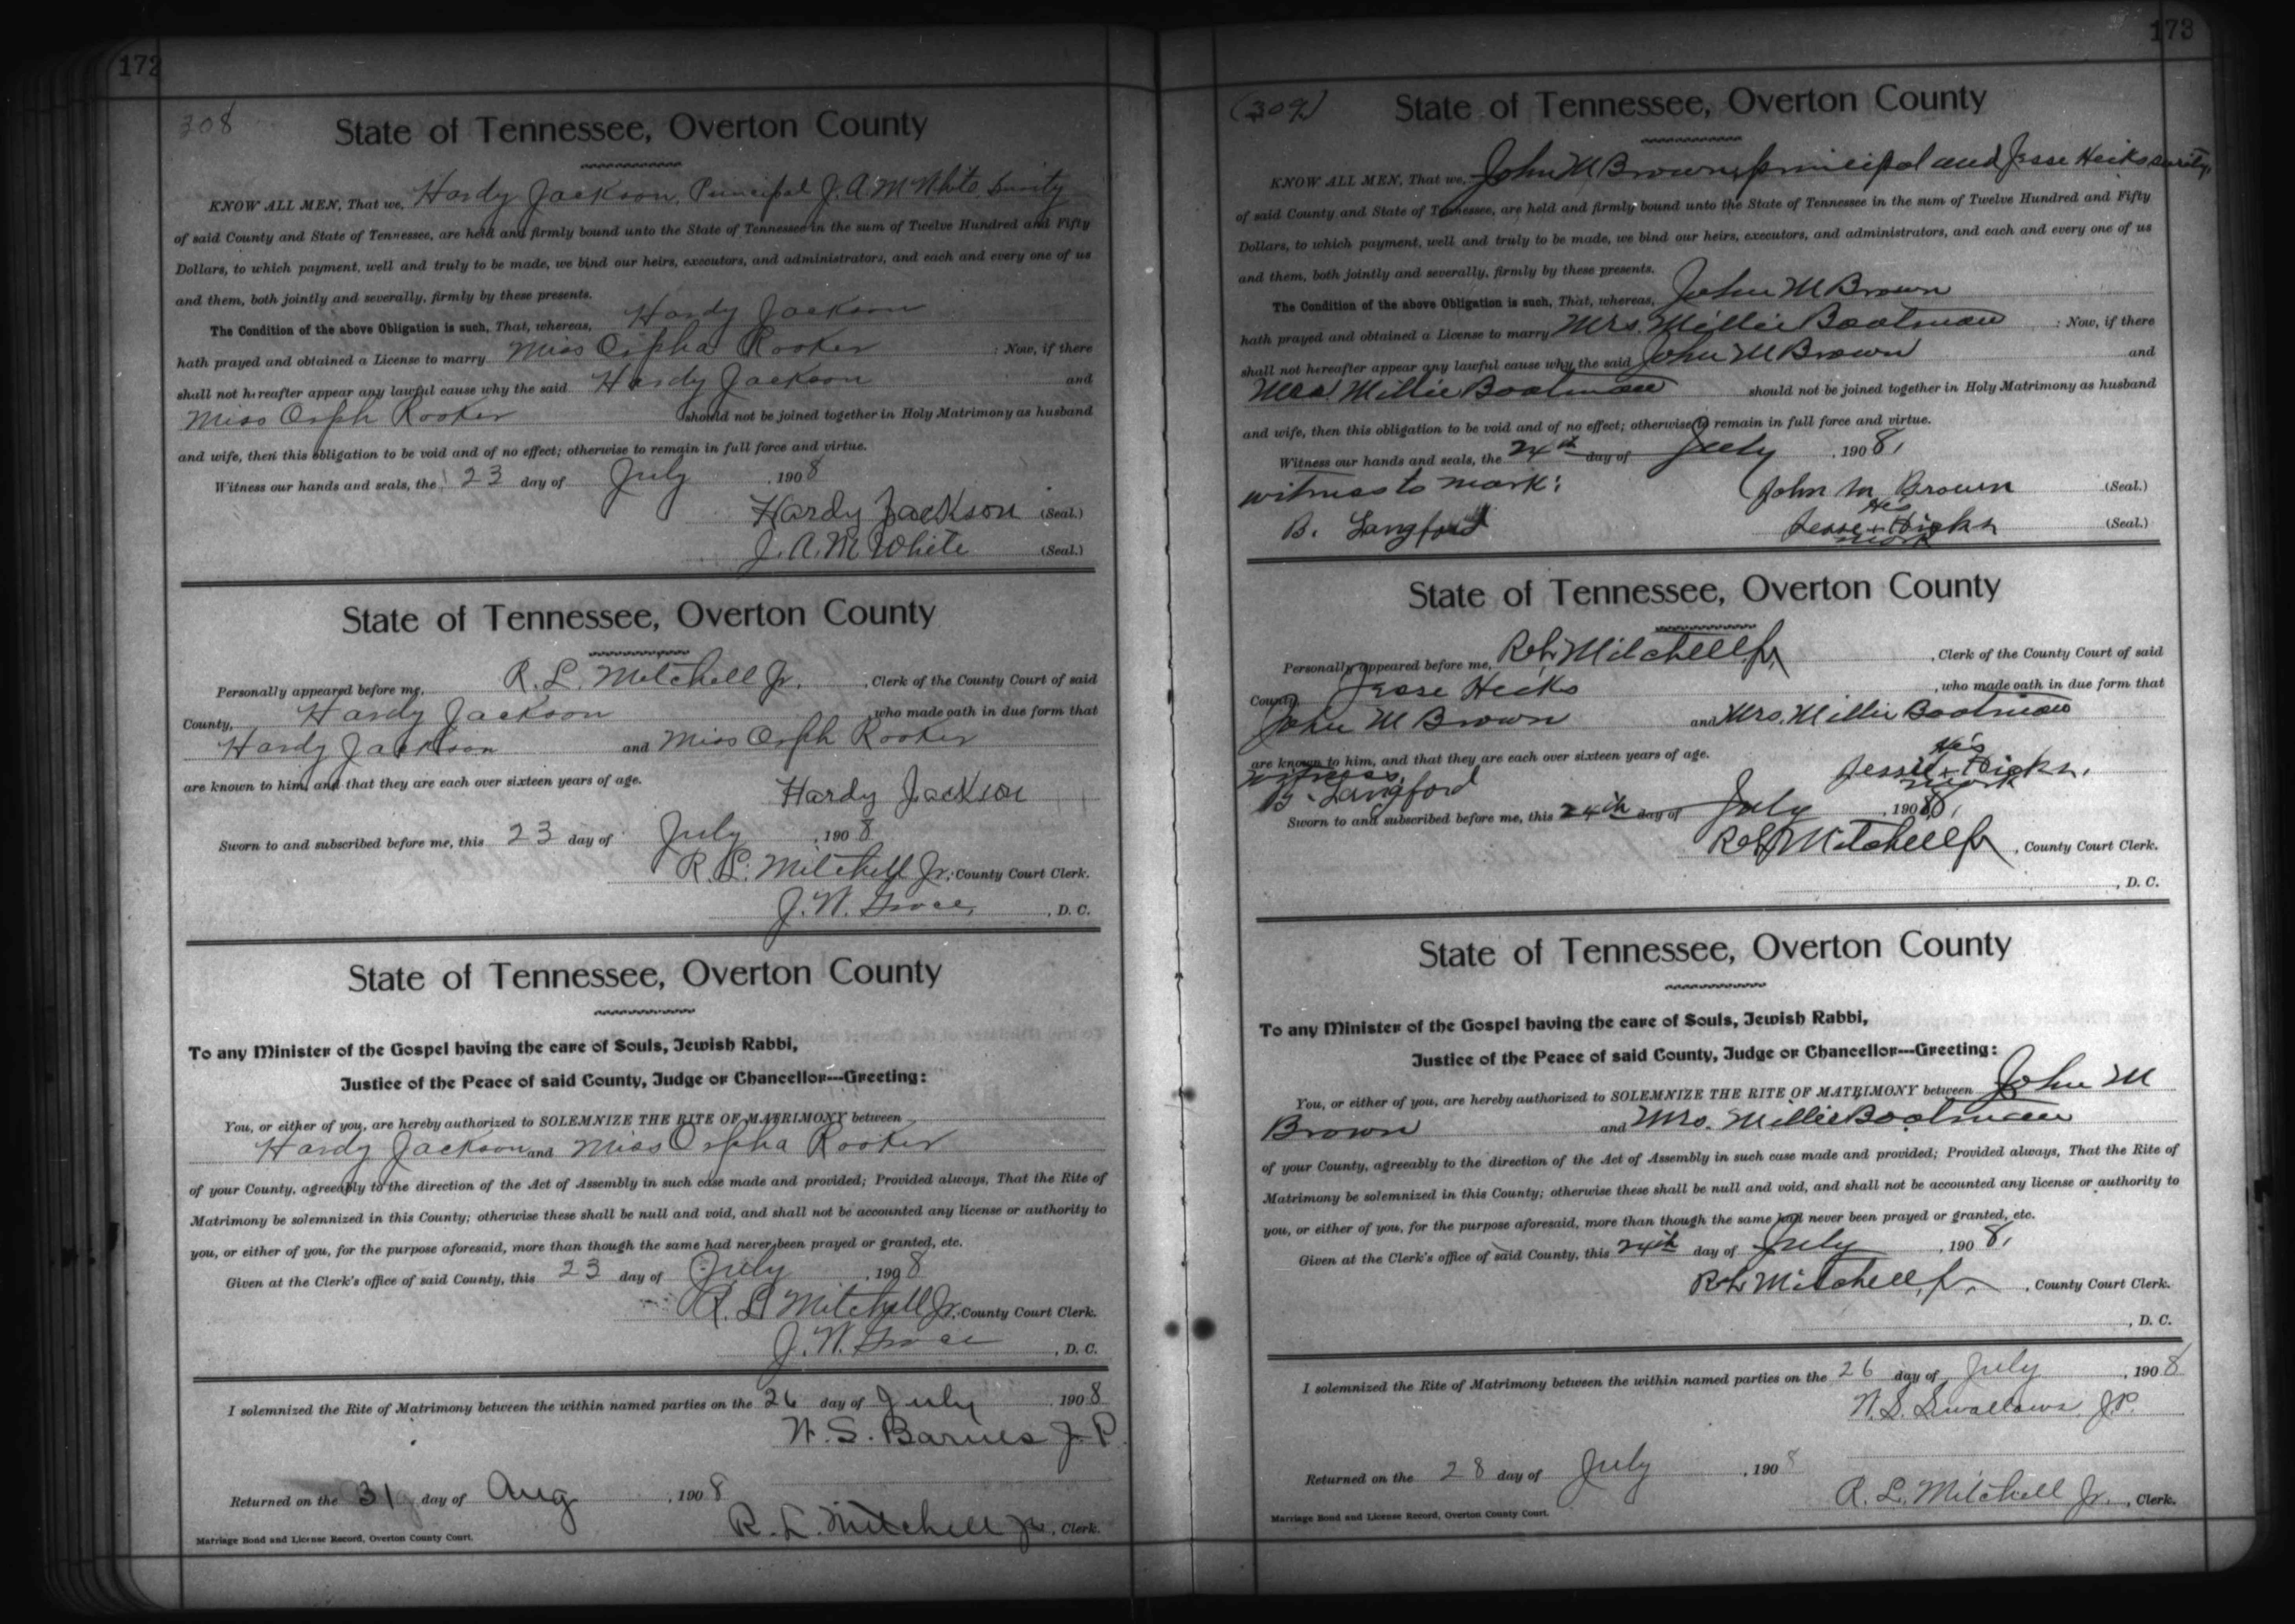 172
308
State of Tennessee, Overton County
KNOW ALL MEN, That we, Hardy Jackson, Principal J. A. M White Surity
of said County and State of Tennessee, are held and firmly bound unto the State of Tennessee in the sum of Twelve Hundred and Fifty
Dollars, to which payment, well and truly to be made, we bind our heirs, executors, and administrators, and each and every one of us
and them, both jointly and severally, firmly by these presents.
The Condition of the above Obligation is such, That, whereas, Hardy Jackson
hath prayed and obtained a License to marry Miss Orpha Rooker : Now, if there
shall not hereafter appear any lawful cause why the said Hardy Jackson and
Miss Orph Rooker should not be joined together in Holy Matrimony as husband
and wife, then this obligation to be void and of no effect; otherwise to remain in full force and virtue.
Witness our hands and seals, the 23 day of July , 1908
Hardy Jackson (Seal.)
J. A. M White (Seal.)
State of Tennessee, Overton County
Personally appeared before me, R. L. Mitchell Jr. , Clerk of the County Court of said
County, Hardy Jackson , who made oath in due form that
Hardy Jackson and Miss Orph Rooker
are known to him, and that they are each over sixteen years of age.
Hardy Jackson
Sworn to and subscribed before me, this 23 day of July , 1908
R. L. Mitchell Jr. , County Court Clerk.
J. N. , D. C.
State of Tennessee, Overton County
To any Minister of the Gospel having the care of Souls, Jewish Rabbi,
Justice of the Peace of said County, Judge or Chancellor---Greeting:
You, or either of you, are hereby authorized to SOLEMNIZE THE RITE OF MATRIMONY between
Hardy Jackson and Miss Orpha Rooker
of your County, agreeably to the direction of the Act of Assembly in such case made and provided; Provided always, That the Rite of
Matrimony be solemnized in this County; otherwise these shall be null and void, and shall not be accounted any license or authority to
you, or either of you, for the purpose aforesaid, more than though the same had never been prayed or granted, etc.
Given at the Clerk's office of said County, this 23 day of July , 1908
R. L. Mitchell Jr. , County Court Clerk.
J. N. , D. C.
I solemnized the Rite of Matrimony between the within named parties on the 26 day of July 1908
W. S. Barnes J. P.
Returned on the 31 day of Aug , 1908
R. L. Mitchell Jr. , Clerk.
Marriage Bond and License Record, Overton County Court.
173
(309)
State of Tennessee, Overton County
KNOW ALL MEN, That we, John M Brown, principal and Jesse Hicks surity,
of said County and State of Tennessee, are held and firmly bound unto the State of Tennessee in the sum of Twelve Hundred and Fifty
Dollars, to which payment, well and truly to be made, we bind our heirs, executors, and administrators, and each and every one of us
and them, both jointly and severally, firmly by these presents.
The Condition of the above Obligation is such, That, whereas, John M Brown
hath prayed and obtained a License to marry Mrs. Millie Boatman : Now, if there
shall not hereafter appear any lawful cause why the said John M Brown and
Mrs. Millie Boatman should not be joined together in Holy Matrimony as husband
and wife, then this obligation to be void and of no effect; otherwise to remain in full force and virtue.
Witness our hands and seals, the 24th day of July , 1908,
witness to mark: John M Brown (Seal.)
His
B. Langford Jesse x Hicks (Seal.)
mark
State of Tennessee, Overton County
Personally appeared before me, R. L. Mitchell Jr. , Clerk of the County Court of said
County, Jesse Hicks , who made oath in due form that
John M Brown and Mrs. Millie Boatman
are known to him, and that they are each over sixteen years of age.
His
witness, Jessie x Hicks.
B. Langford mark
Sworn to and subscribed before me, this 24th day of July , 1908,
R. L. Mitchell Jr , County Court Clerk.
, D. C.
State of Tennessee, Overton County
To any Minister of the Gospel having the care of Souls, Jewish Rabbi,
Justice of the Peace of said County, Judge or Chancellor---Greeting:
You, or either of you, are hereby authorized to SOLEMNIZE THE RITE OF MATRIMONY between John M
Brown and Mrs. Millie Boatman
of your County, agreeably to the direction of the Act of Assembly in such case made and provided; Provided always, That the Rite of
Matrimony be solemnized in this County; otherwise these shall be null and void, and shall not be accounted any license or authority to
you, or either of you, for the purpose aforesaid, more than though the same had never been prayed or granted, etc.
Given at the Clerk's office of said County, this 24th day of July , 1908,
R. L. Mitchell, Jr. , County Court Clerk.
, D. C.
I solemnized the Rite of Matrimony between the within named parties on the 26 day of July , 1908
W. S. Swallows, J. P.
Returned on the 28 day of July , 1908
R. L. Mitchell Jr. , Clerk.
Marriage Bond and License Record, Overton County Court.